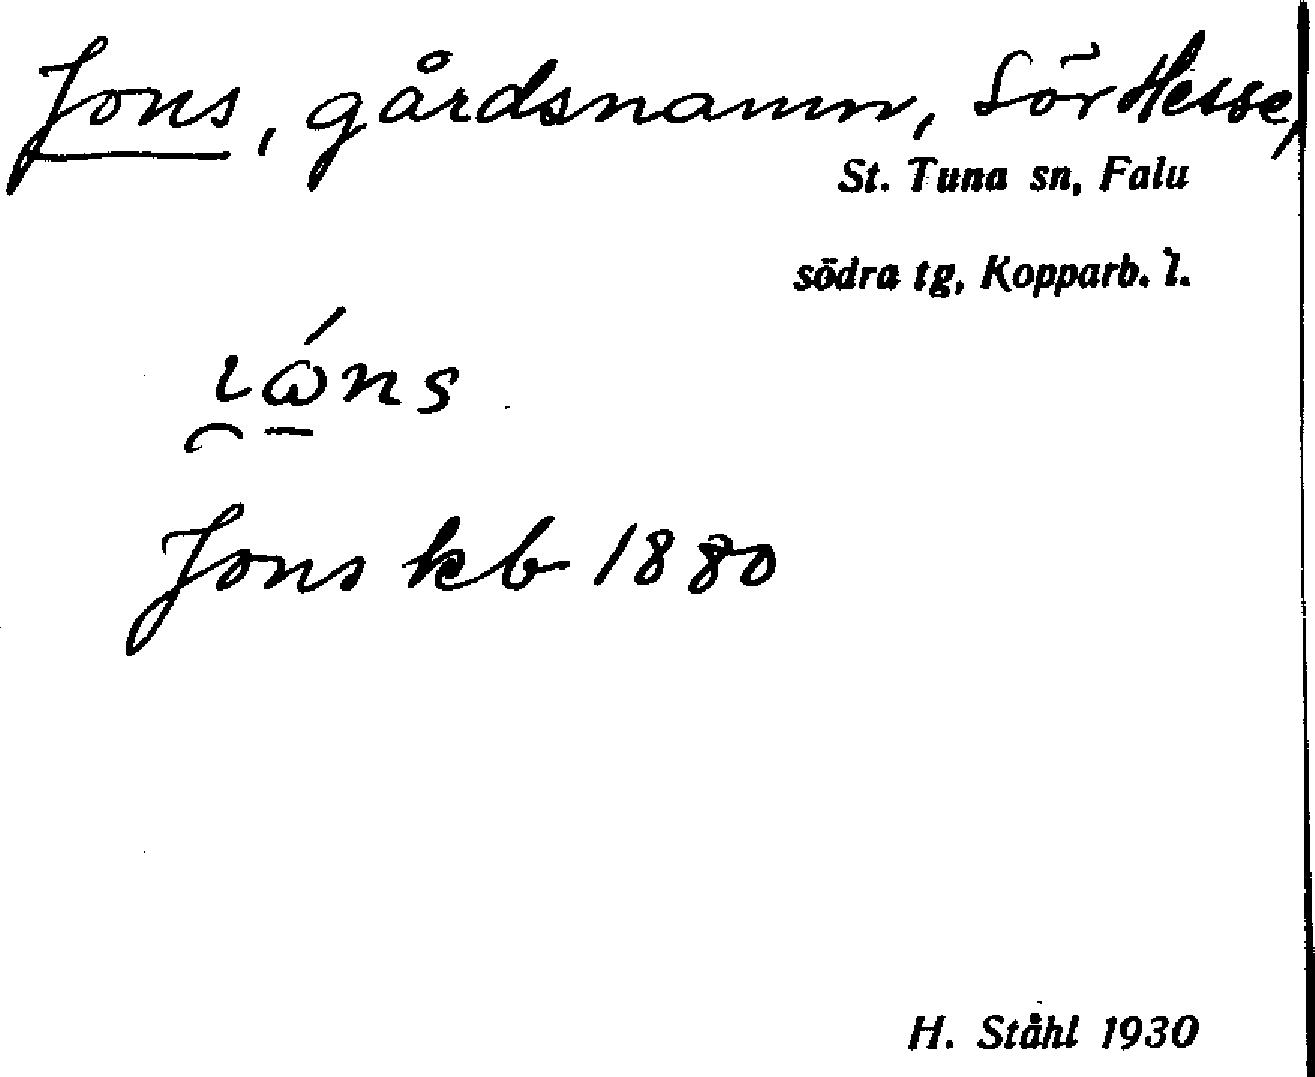 Jons, gårdsnamn, Sör Hesse,
St. Tuna sn, Falu
södra tg, Kopparb. l.
Jons kb 1880
H. Ståhl 1930